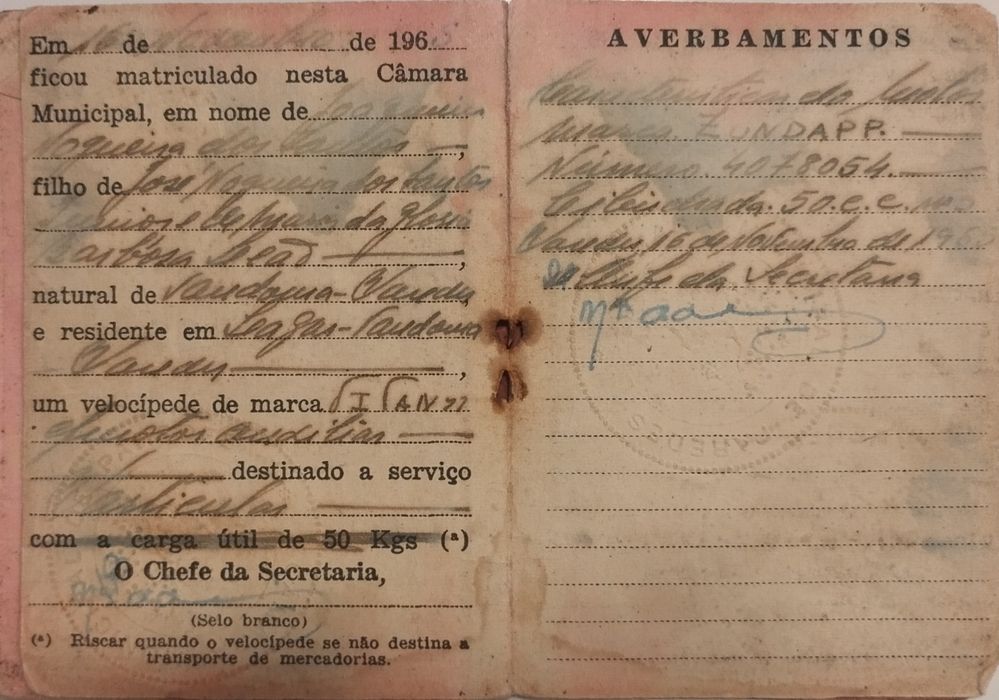 Em 16 de Novembro de 196
ficou matriculado nesta Câmara
Municipal, em nome de Joaquim
Nogueira dos Santos,
filho de José Nogueira dos Santos
Junior e de Maria da Gloria
Barbosa Leão,
natural de Vandoma-Paredes
e residente em Lagar-Vandoma
Paredes,
um velocípede de marca
motor auxiliar
destinado a serviço
Particular
com a carga útil de 50 Kgs (ª)
O Chefe da Secretaria,
(Selo branco)
(ª) Riscar quando o velocípede se não destina a
transporte de mercadorias.
AVERBAMENTOS
Caracteristicas do Motor
Marca ZUNDAPP.
Número. 4078054.
Cilindrada. 50. c. c.
Paredes, 16 de Novembro de 196
O Chefe da Secretaria
PAREDES